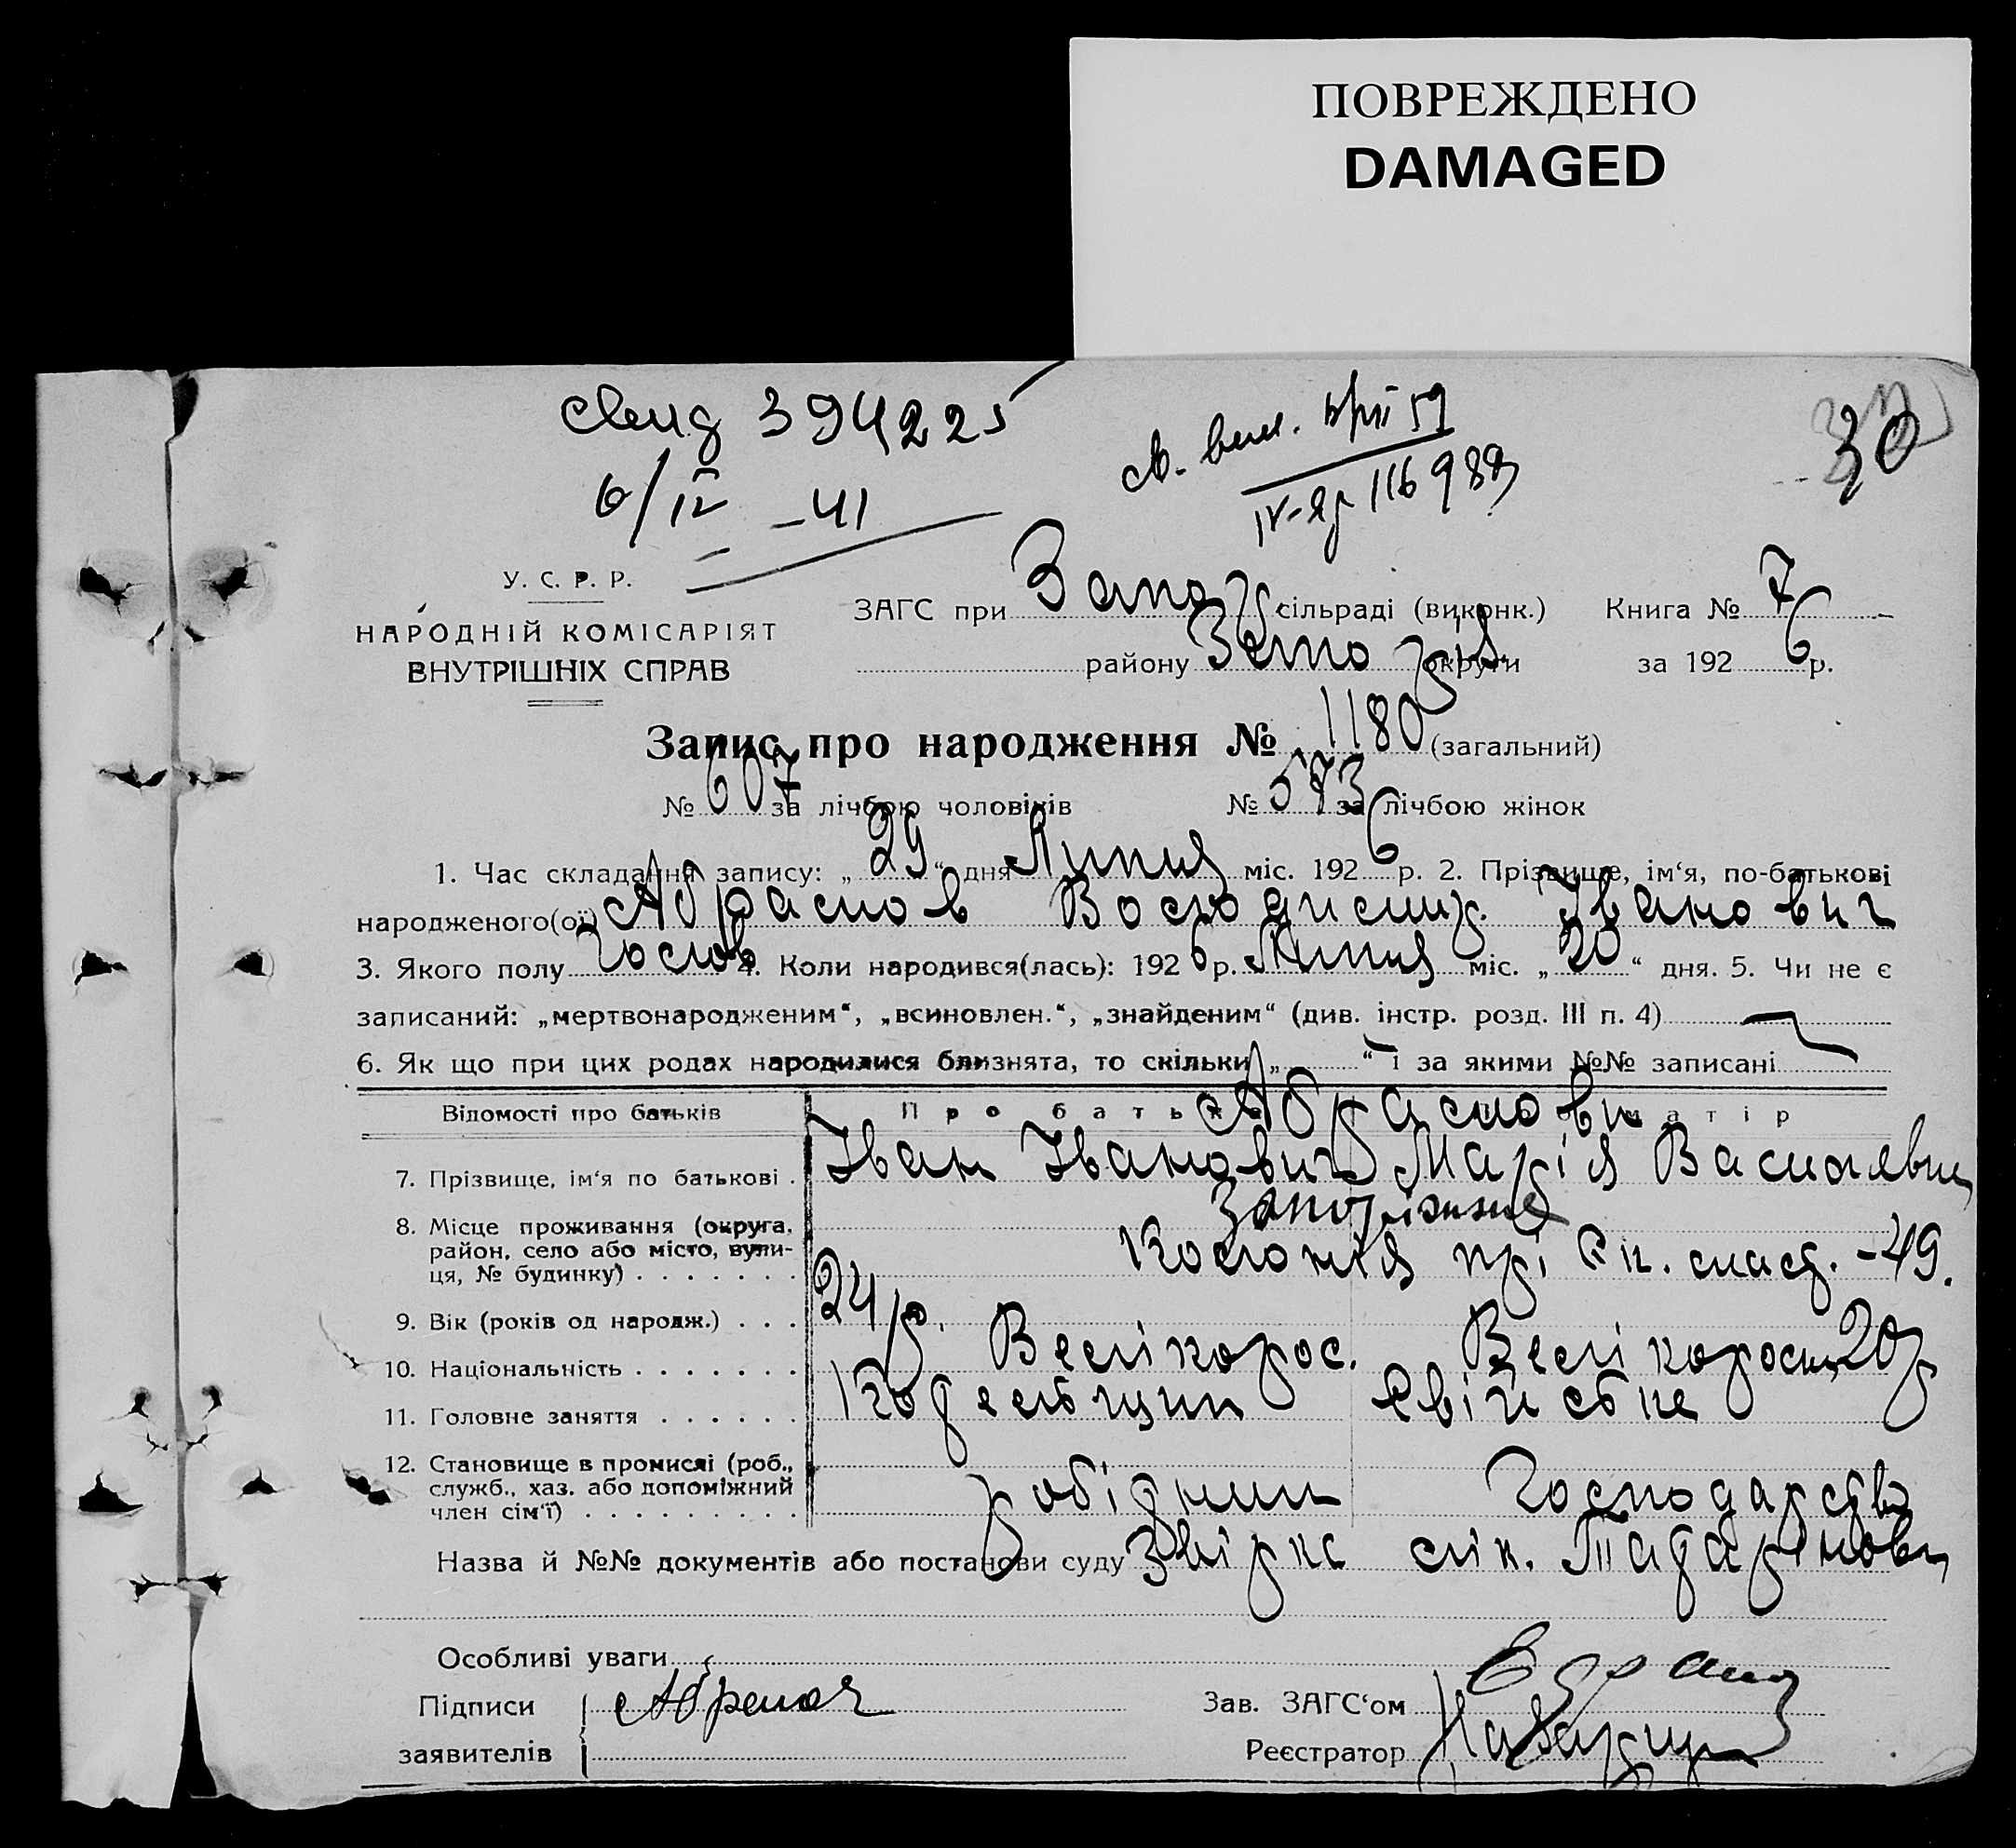 ПОВРЕЖДЕНО
DAMAGED
394225
6/IV -41
116989
30
У. С. Р. Р.
НАРОДНІЙ КОМІСАРІЯТ
ВНУТРІШНІХ СПРАВ
ЗАГС при Запор. сільраді (виконк.) Книга № 7
району округи за 1926 р.
Запис про народження № 1180 (загальний)
№ 607 за лічбою чоловіків № 573 за лічбою жінок
1. Час складання запису: „29“ дня Липня міс. 1926 р. 2. Прізвище, ім‘я, по-батькові
народженого(ої) Абрамов Іванович
3. Якого полу чолов 4. Коли народився(лась): 1926 р. Липня міс. „20“ дня. 5. Чи не є
записаний: „мертвонародженим“, „всиновлен.“, „знайденим“ (див. інстр. розд. III п. 4)
6. Як що при цих родах народилися близнята, то скільки „ “ і за якими №№ записані
Відомості про батьків Про батька матір
Абрамови
7. Прізвище, ім‘я по батькові . Іван Іванович Марія
8. Місце проживання (округа, район, село або місто, вулиця, № будинку) . . . . . . . Запоріжжя
Колонія прі -49.
9. Вік (років од народж.) . . . 24 р. 20 р
10. Національність . . . . . . . Велікорос. Велікороска
11. Головне заняття . . . . . .
12. Становище в промислі (роб., служб., хаз. або допоміжний член сім‘ї) . . . . . . . . . робідник Господарство
Назва й №№ документів або постанови суду
Особливі уваги
Підписи заявителів
Зав. ЗАГС‘ом
Реєстратор